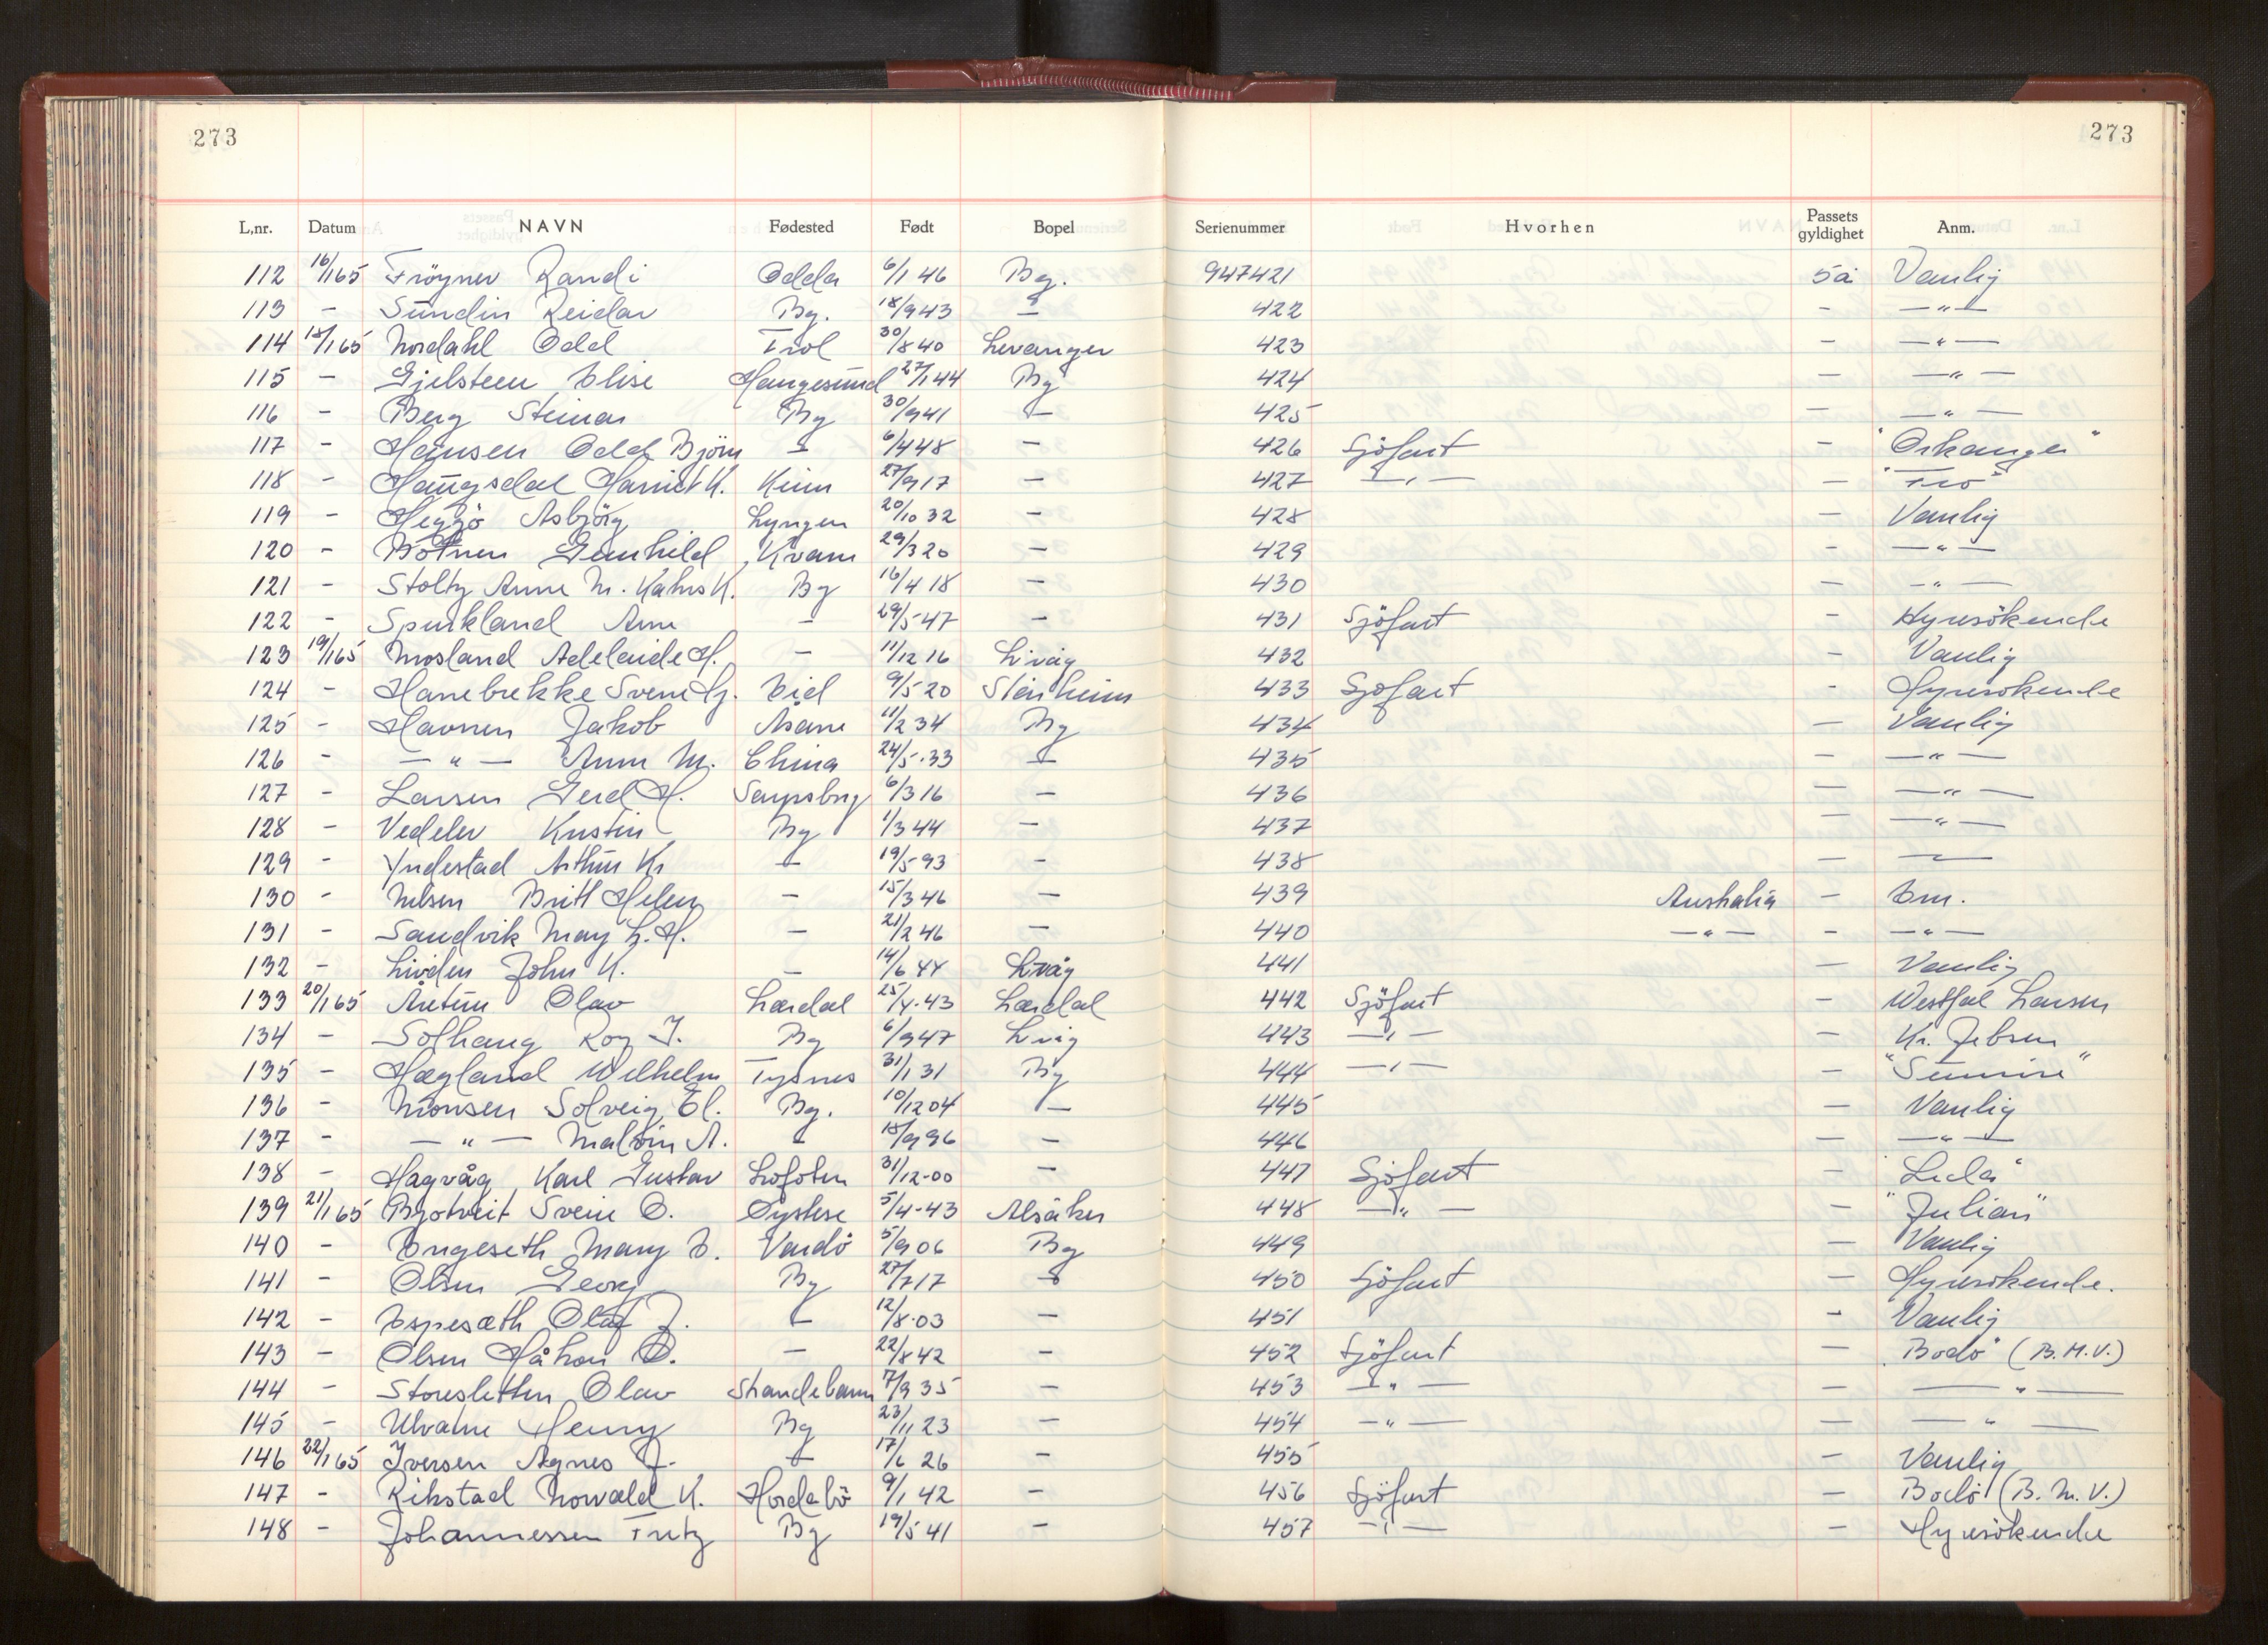 273 273
L,nr. Datum NAVN Fødested Født Bopel Serienummer Hvorhen Passets gyldighet Anm.
112 16/1 65 Fröyner Randi Odda 6/1 46 Bg. 947421 5 å Vanlig
113 - Sundin Reidar Bg. 18/9 43 — 422 - —"—
114 18/1 65 Nordahl Odd Frol 30/8 40 Levanger 423 - —"—
115 - Gjelsteen Elise Haugesund 27/1 44 Bg 424 - —"—
116 - Berg Steinar Bg 30/9 41 — 425 — —"—
117 - Hansen Odd Björn — 6/4 48 — 426 Sjöfart - "Orkanger"
118 - Haugsdal Harriet K. Kinn 27/9 17 — 427 —"— — "Fro"
119 - Heggö Asbjörg Lyngen 20/10 32 — 428 — Vanlig
120 - Botnen Gunhild Kvam 29/3 20 — 429 - —"—
121 - Stoltz Anne M. Kahrs K. Bg 16/4 18 — 430 — —"—
122 - Spurkland Arne — 29/5 47 — 431 Sjöfart - Hyresökende
123 19/1 65 Mosland Adelaide H. — 11/12 16 L.våg 432 - Vanlig
124 - Hanebrekke Svein Hj. Eid 9/5 20 Steinheim 433 Sjöfart - Hyresökende
125 - Havnen Jakob Åsane 11/2 34 Bg 434 — Vanlig
126 - —"— Anne M. China 24/5-33 — 435 — —"—
127 - Larsen Gerd H. Sarpsborg 6/3 16 — 436 — —"—
128 - Vedeler Kirstin Bg 1/3 44 — 437 — —"—
129 - Yndestad Arthur Kr — 19/5 93 — 438 — —
130 - Nilsen Britt Helen — 15/3 46 — 439 Australia — Em.
131 - Sandvik May L. H. — 21/2 46 — 440 —"— - —"—
132 - Lividen John K. — 14/6 44 L.våg 441 — Vanlig
133 20/1 65 Åretun Olav Lærdal 25/4-43 Lærdal 442 Sjöfart - Westfal Larsen
134 - Solhaug Roy I. Bg 6/9 47 L.våg 443 —"— — Kr. Jebsen
135 - Hægland Wilhelm Tysnes 31/1 31 Bg 444 —"— — "Sunnive"
136 - Monsen Solveig El. Bg. 10/12 04 — 445 — Vanlig
137 - —"— Malvin A. — 18/9 96 — 446 — —"—
138 - Hagvåg Karl Gustav Lofoten 31/12-00 — 447 Sjöfart - "Leda"
139 21/1 65 Bjotveit Svein O. Øystese 5/4-43 Alsåker 448 —"— — "Julian"
140 - Engeseth Mary E. Vardö 5/9 06 Bg 449 — Vanlig
141 - Olsen Georg Bg 27/7 17 — 450 Sjöfart — Hyresökende.
142 - Espesæth Olaf J. — 12/8-03 — 451 - Vanlig
143 - Olsen Håkon O. — 22/8 42 — 452 Sjöfart — "Bodö" (B.M.V.)
144 - Storesletten Olav Strandebarm 7/9 35 — 453 —"— — —"—
145 - Ulvatne Henry Bg 23/11 23 — 454 —"— — —"—
146 22/1 65 Iversen Agnes J. — 17/6 26 — 455 — Vanlig
147 - Rikstad Norvald K. Hordabö 9/1 42 — 456 Sjöfart — Bodö (B.M.V.)
148 - Johannessen Fritz Bg 19/5 41 — 457 —"— — Hyresökende